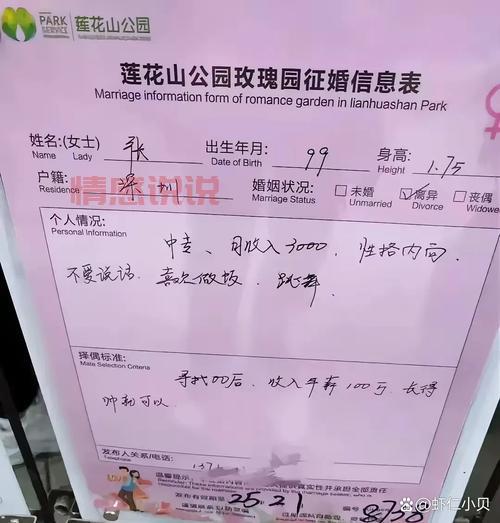 PARK
SERVICE
莲花山公园
莲花山公园玫瑰园征婚信息表
Marriage information form of romance garden in lianhuashan Park
姓名:(女士) 张 出生年月: 99 身高: 1.75
Name Lady Date of Birth Height
户籍: 深圳 婚姻状况: 未婚 离异 丧偶
Residence Marriage Status Unmarried Divorce Widowed
情感说说
个人情况:
Personal Information
中专、月收入3000、性格内向
不爱说话、喜欢做饭、跳舞
择偶标准:
Mate Selection Criteria
寻找00后、收入年薪100万、长得
帅就可以
发布人关系/电话:
Telephone
137
温馨提示:
真实性并承担全部责任
发布有效期至
25 21
编号
8728
@虾仁小贝